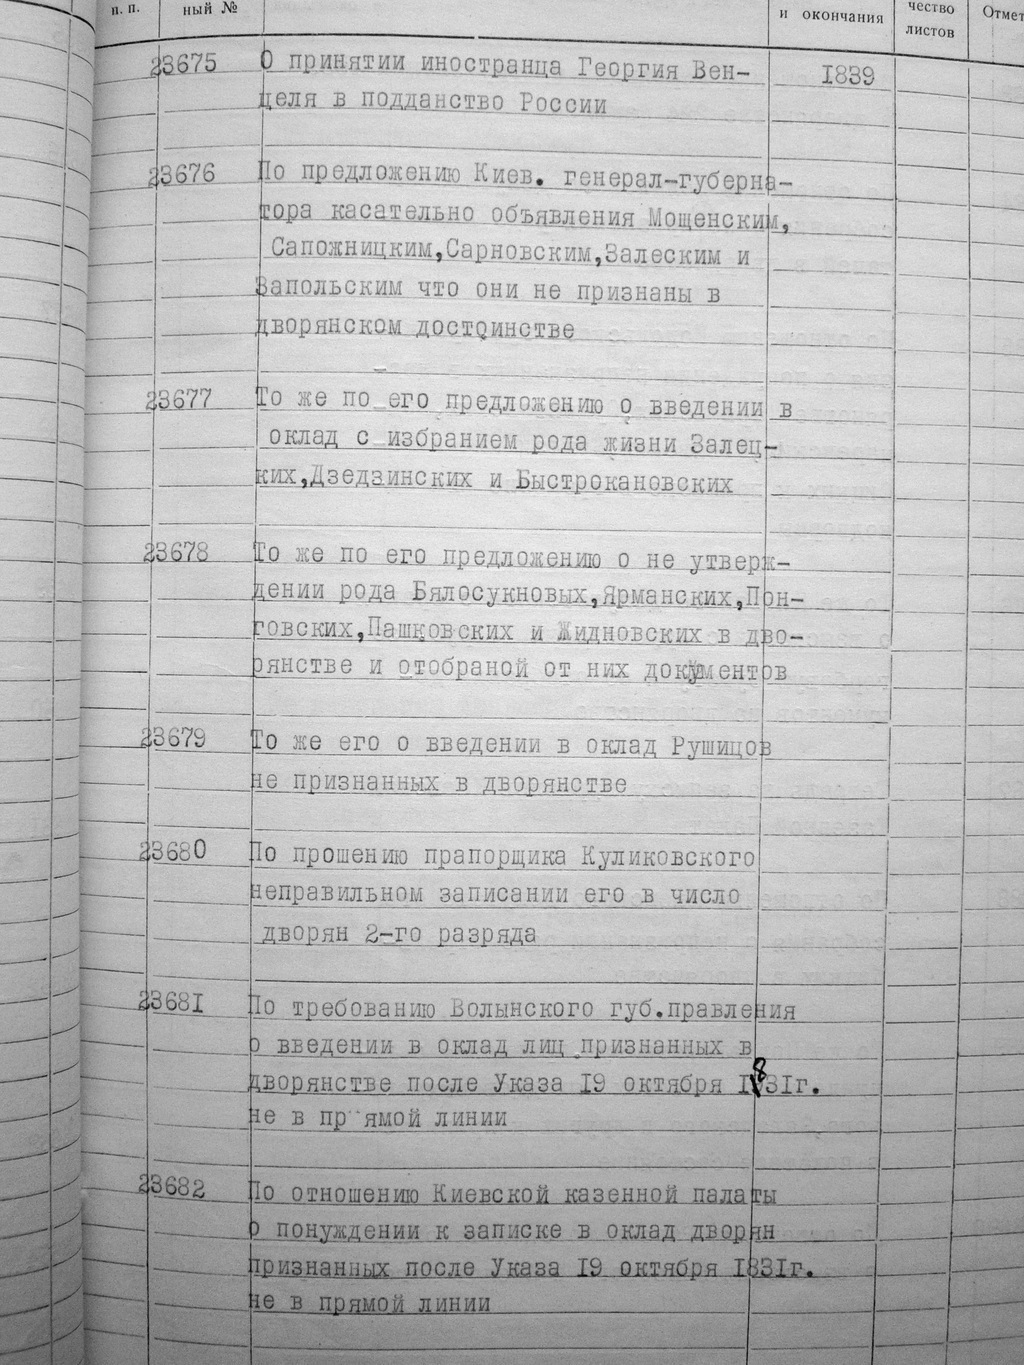 п. п.
ный №
и окончания
чество
листов
Отмет
23675 О принятии иностранца Георгия Вен- 1839
целя в подданство России
23676 По предложению Киев. генерал-губерна-
тора касательно объявления Мощенским,
Сапожницким,Сарновским,Залеским и
Запольским что они не признаны в
дворянском достоинстве
23677 То же по его предложению о введении в
оклад с избранием рода жизни Залец-
ких,Дзедзинских и Быстрокановских
23678 То же по его предложению о не утверж-
дении рода Бялосукновых,Ярманских,Пон-
говских,Пашковских и Жидновских в дво-
рянстве и отобраной от них документов
23679 То же его о введении в оклад Рушицов
не признанных в дворянстве
23680 По прошению прапорщика Куликовского
неправильном записании его в число
дворян 2-го разряда
23681 По требованию Волынского губ.правления
о введении в оклад лиц признанных в
дворянстве после Указа 19 октября 1831г.
не в прямой линии
23682 По отношению Киевской казенной палаты
о понуждении к записке в оклад дворян
признанных после Указа 19 октября 1831г.
не в прямой линии